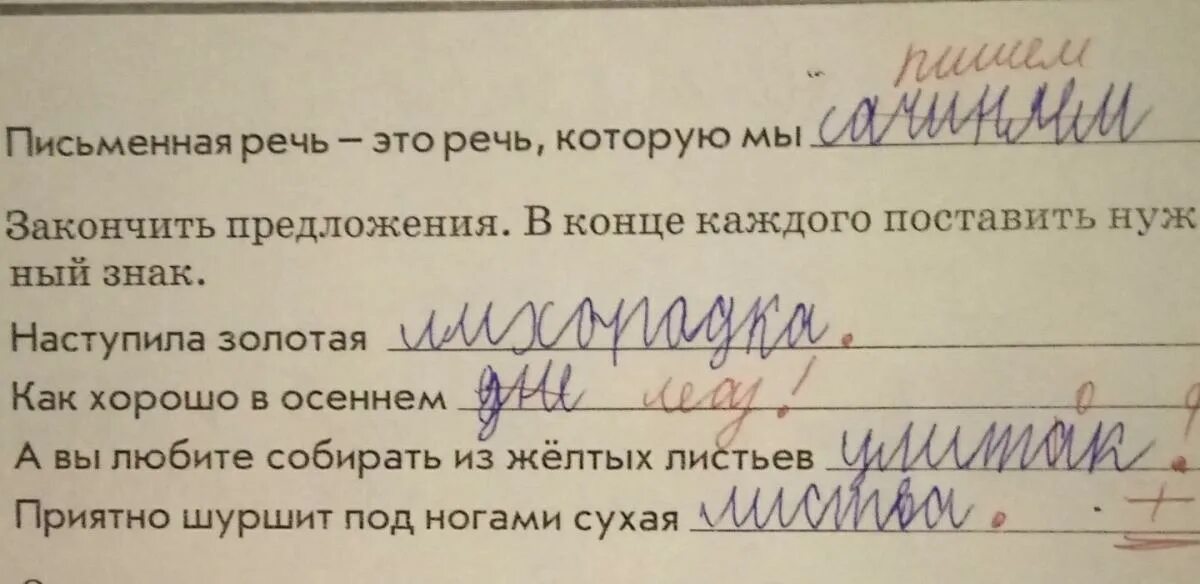 пишем
Письменная речь – это речь, которую мы сачиняем
Закончить предложения. В конце каждого поставить нуж
ный знак.
Наступила золотая лихорадка.
Как хорошо в осеннем дне лесу!
о
А вы любите собирать из жёлтых листьев улиток.
Приятно шуршит под ногами сухая листва. +